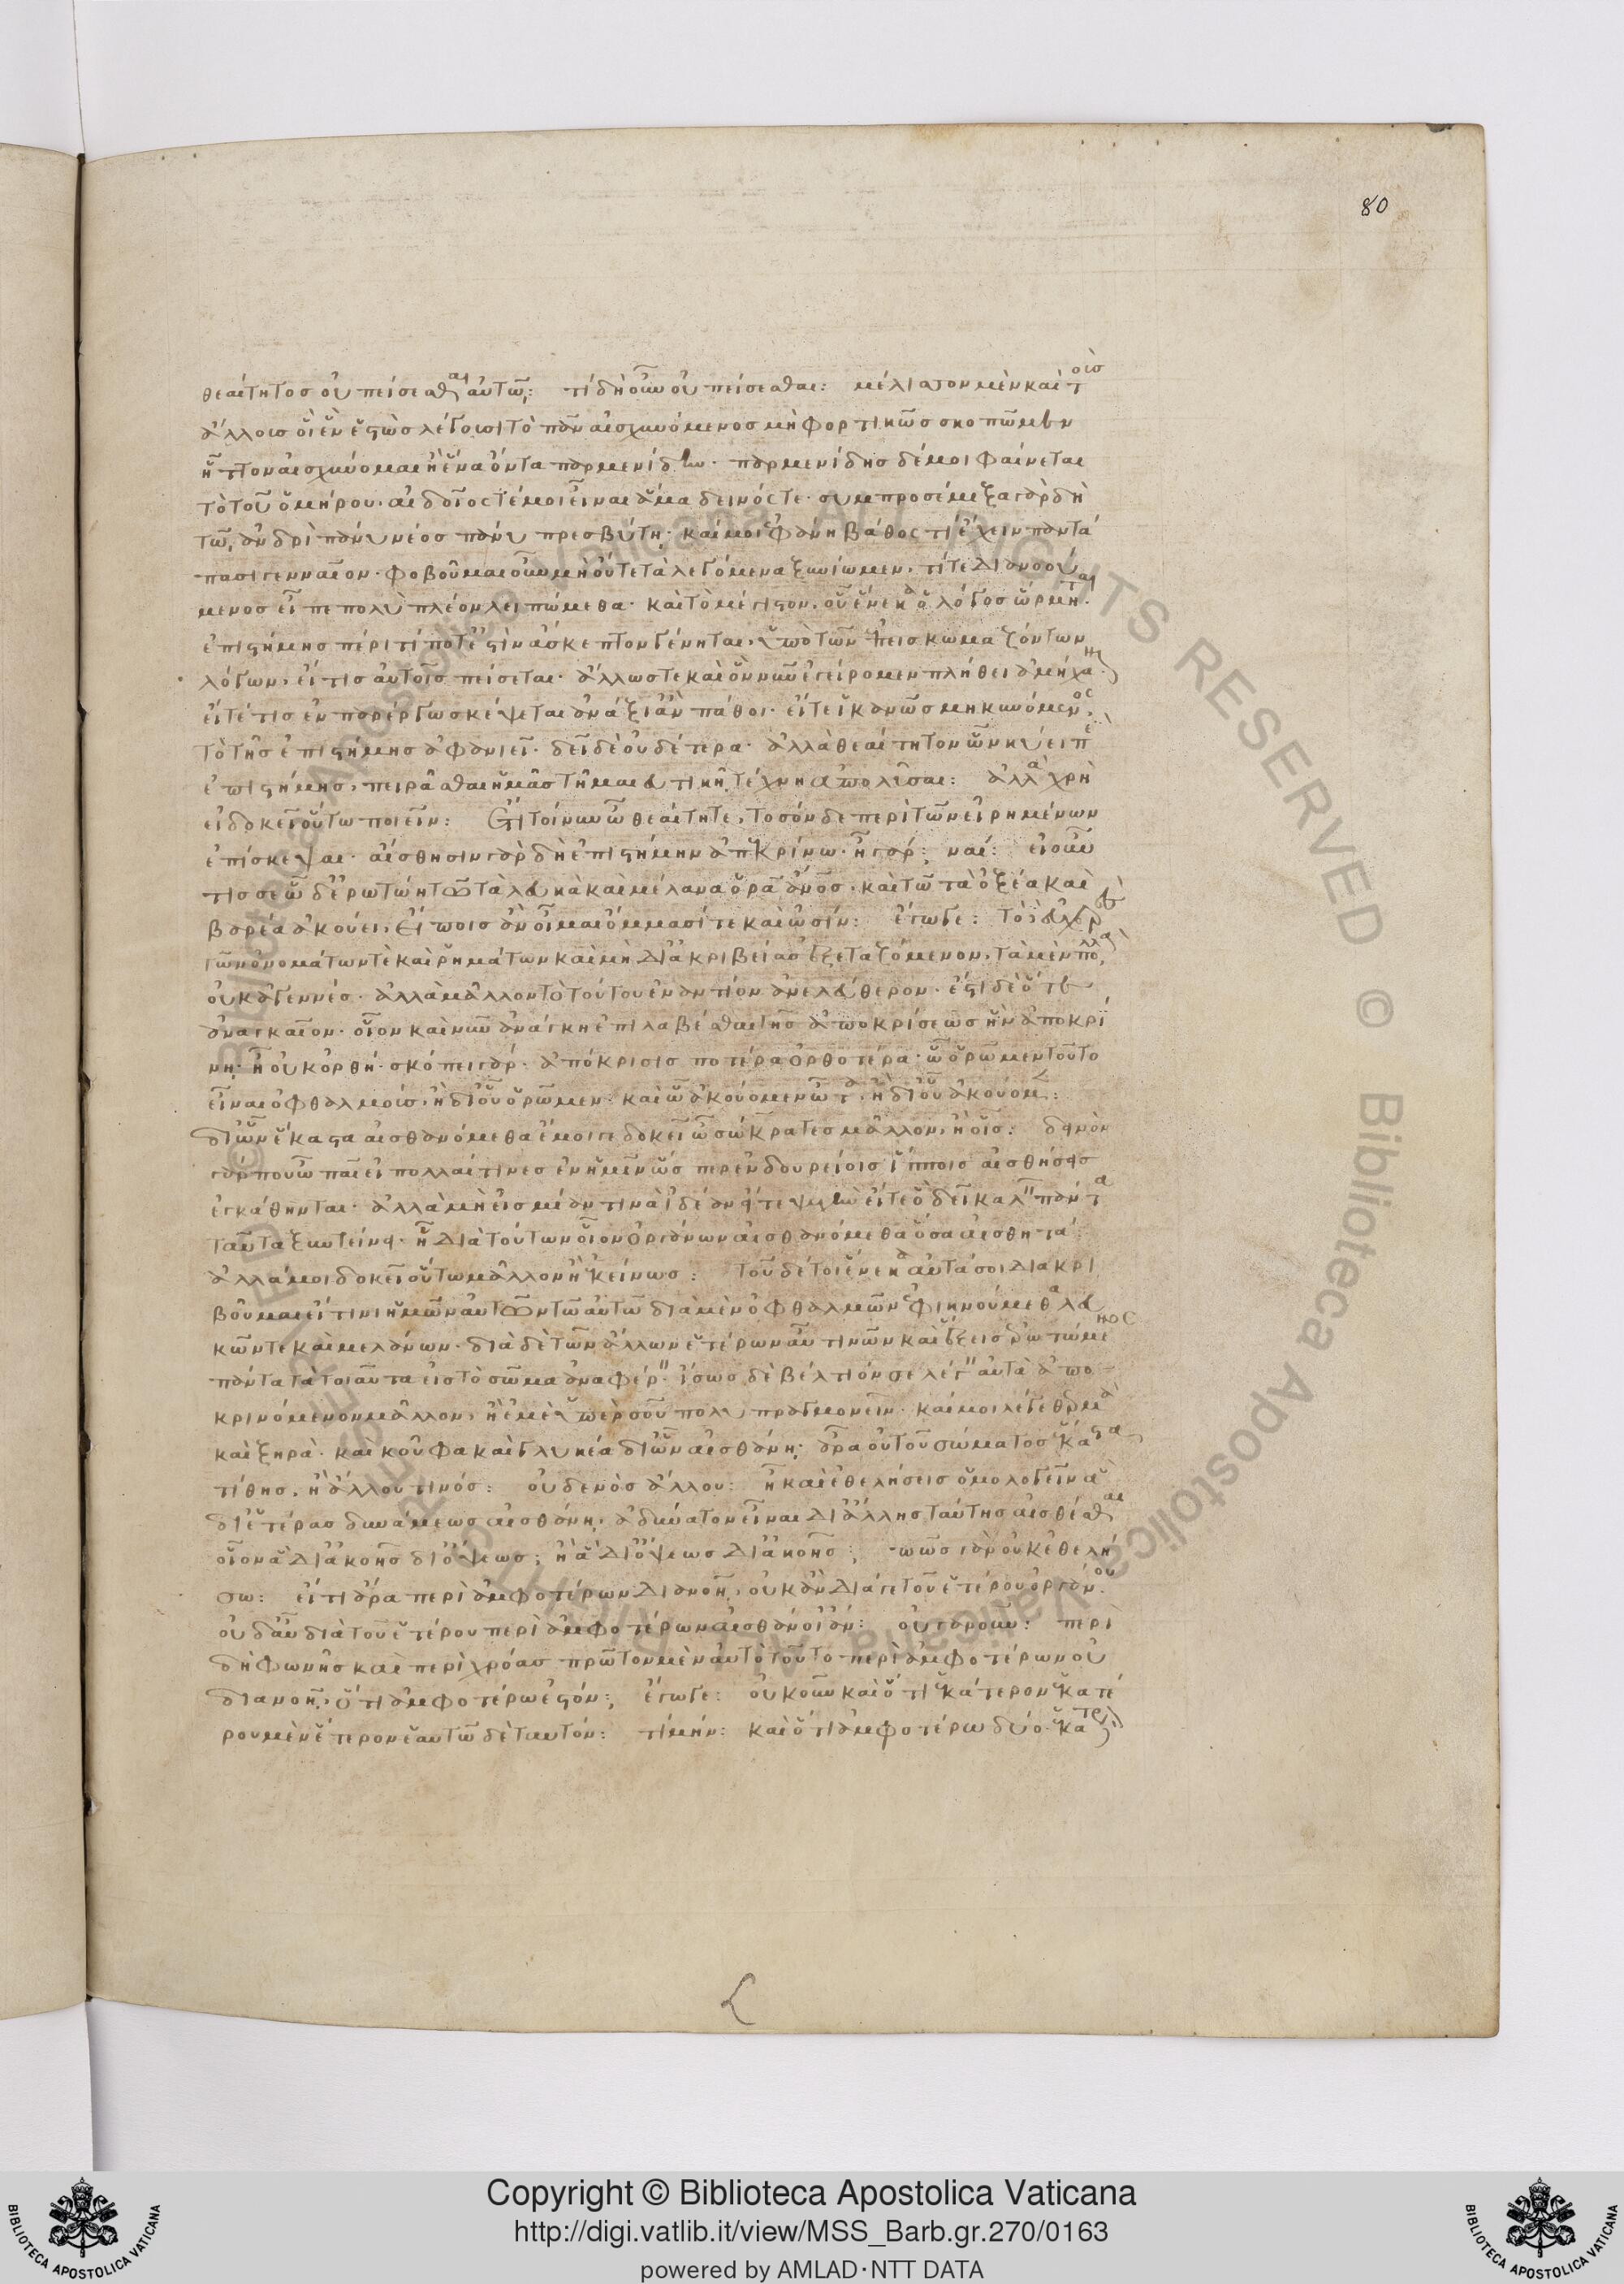 80
θεαίτητος οὐ πείσεσθαι αὐτῶι: τί δὴ οὖν οὐ πείσεσθαι: μέλισσον μὲν καὶ τοὺς
ἄλλους οἳ ἓν ἑστὼς λέγουσι τὸ πᾶν αἰσχυνόμενος μὴ φορτικῶς σκοπῶμεν
ἧττον αἰσχύνομαι ἢ ἕνα ὄντα παρμενίδην· παρμενίδης δέ μοι φαίνεται
τὸ τοῦ ὁμήρου· αἰδοῖός τέ μοι εἶναι ἅμα δεινός τε· συμπροσέμιξα γὰρ δὴ
τῶι ἀνδρὶ πάνυ νέος πάνυ πρεσβύτηι· καί μοι ἐφάνη βάθος τι ἔχειν παντά
πασι γενναῖον· φοβοῦμαι οὖν μὴ οὔτε τὰ λεγόμενα ξυνίωμεν, τί τε διανοού
μενος εἶπε πολὺ πλέον λειπώμεθα· καὶ τὸ μέγιστον, οὗ ἕνεκα ὁ λόγος ὥρμηται
ἐπιστήμης πέρι τί ποτ' ἐστὶν ἄσκεπτον γένηται, ὑπὸ τῶν ἐπεισκωμαζόντων
λόγων, εἴ τις αὐτοῖς πείσεται· ἄλλως τε καὶ ὃν νῦν ἐγείρομεν πλήθει ἀμήχανον
εἴτέ τις ἐν παρέργω σκέψεται ἀνάξι' ἂν πάθοι· εἴτε ἱκανῶς μηκυνόμενος
τὸ τῆς ἐπιστήμης ἀφανιεῖ· δεῖ δὲ οὐδέτερα· ἀλλὰ θεαίτητον ὧν κυεῖ περὶ
ἐπιστήμης, πειρᾶσθαι ἡμᾶς τῆι μαιευτικῆι τέχνηι ἀπολῦσαι: ἀλλὰ χρὴ
εἰ δοκεῖ οὕτω ποιεῖν: Ἔτι τοίνυν ὦ θεαίτητε, τοσόνδε περὶ τῶν εἰρημένων
ἐπίσκεψαι· αἴσθησιν γὰρ δὴ ἐπιστήμην ἀπεκρίνω· ἦ γάρ; ναί: εἰ οὖν
τίς σε ὧδ' ἐρωτώιη τῶι τὰ λευκὰ καὶ μέλανα ὁρᾶι ἄνθρωπος· καὶ τῶι τὰ ὀξέα καὶ
βαρέα ἀκούει, εἴποις ἂν οἶμαι ὄμμασί τε καὶ ὠσίν: ἔγωγε: τὸ δὲ εὐχερὲς
τῶν ὀνομάτων τὲ καὶ ῥημάτων καὶ μὴ δι' ἀκριβείας ἐξεταζόμενον, τὰ μὲν πολλὰ
οὐκ ἀγεννές· ἀλλὰ μᾶλλον τὸ τούτου ἐναντίον ἀνελεύθερον· ἔστι δὲ ὅτε
ἀναγκαῖον· οἷον καὶ νῦν ἀνάγκη ἐπιλαβέσθαι τῆς ἀποκρίσεως ἣν ἀποκρί
νηι· ἧι οὐκ ὀρθή· σκόπει γάρ· ἀπόκρισις ποτέρα ὀρθοτέρα· ὧι ὁρῶμεν τοῦτο
εἶναι ὀφθαλμούς, ἢ δι' οὗ ὁρῶμεν· καὶ ὧι ἀκούομεν ὦτα, ἢ δι' οὗ ἀκούομεν:
δι' ὧν ἕκαστα αἰσθανόμεθα ἔμοιγε δοκεῖ ὦ σώκρατες μᾶλλον, ἢ οἷς: δεινὸν
γάρ που ὦ παῖ εἰ πολλαί τινες ἐν ἡμῖν ὥσπερ ἐν δουρείοις ἵπποις αἰσθήσεις
ἐγκάθηνται· ἀλλὰ μὴ εἰς μίαν τινὰ ἰδέαν εἴτε ψυχὴν εἴτε ὃ δεῖ καλεῖν πάντα
ταῦτα ξυντείνει· ἧι διὰ τούτων οἷον ὀργάνων αἰσθανόμεθα ὅσα αἰσθητά:
ἀλλά μοι δοκεῖ οὕτω μᾶλλον ἢ ἐκείνως: τοῦ δέ τοι ἕνεκα αὐτά σοι διακρι
βοῦμαι εἴ τινι ἡμῶν αὐτῶν τῶι αὐτῶι διὰ μὲν ὀφθαλμῶν ἐφικνούμεθα λευ
κῶν τε καὶ μελάνων· διὰ δὲ τῶν ἄλλων ἑτέρων αὖ τινῶν καὶ ἕξεις ἐρωτώμενος
πάντα τὰ τοιαῦτα εἰς τὸ σῶμα ἀναφέρειν· ἴσως δὲ βέλτιόν σε λέγειν αὐτὰ ἀπο
κρινόμενον μᾶλλον, ἢ ἐμὲ ὑπὲρ σοῦ πολυπραγμονεῖν· καί μοι λέγε θερμὰ
καὶ ξηρὰ· καὶ κοῦφα καὶ γλυκέα δι' ὧν αἰσθάνηι; ἆρα οὐ τοῦ σώματος ἕκαστα
τίθης, ἢ ἄλλου τινός: οὐδενὸς ἄλλου: ἦ καὶ ἐθελήσεις ὁμολογεῖν ἃ
δι' ἑτέρας δυνάμεως αἰσθάνηι, ἀδύνατον εἶναι δι' ἄλλης ταύτης αἰσθέσθαι
οἷον ἃ δι' ἀκοῆς δι' ὄψεως; ἢ ἃ δι' ὄψεως δι' ἀκοῆς; πῶς γὰρ οὐκ ἐθελή
σω: εἴ τι ἄρα περὶ ἀμφοτέρων διανοῆι, οὐκ ἂν διά γε τοῦ ἑτέρου ὀργάνου
οὐδ' αὖ διὰ τοῦ ἑτέρου περὶ ἀμφοτέρων αἰσθάνοι' ἄν: οὐ γὰρ οὖν: περὶ
δὴ φωνῆς καὶ περὶ χρόας πρῶτον μὲν αὐτὸ τοῦτο περὶ ἀμφοτέρων οὐ
διανοῆι, ὅτι ἀμφοτέρω ἐστόν; ἔγωγε: οὐκοῦν καὶ ὅτι ἑκάτερον ἑκατέ
ρου μὲν ἕτερον ἑαυτῶ δὲ ταυτόν: τί μήν: καὶ ὅτι ἀμφοτέρω δύο· ἑκάτερον
Copyright © Biblioteca Apostolica Vaticana
http://digi.vatlib.it/view/MSS_Barb.gr.270/0163
powered by AMLAD·NTT DATA